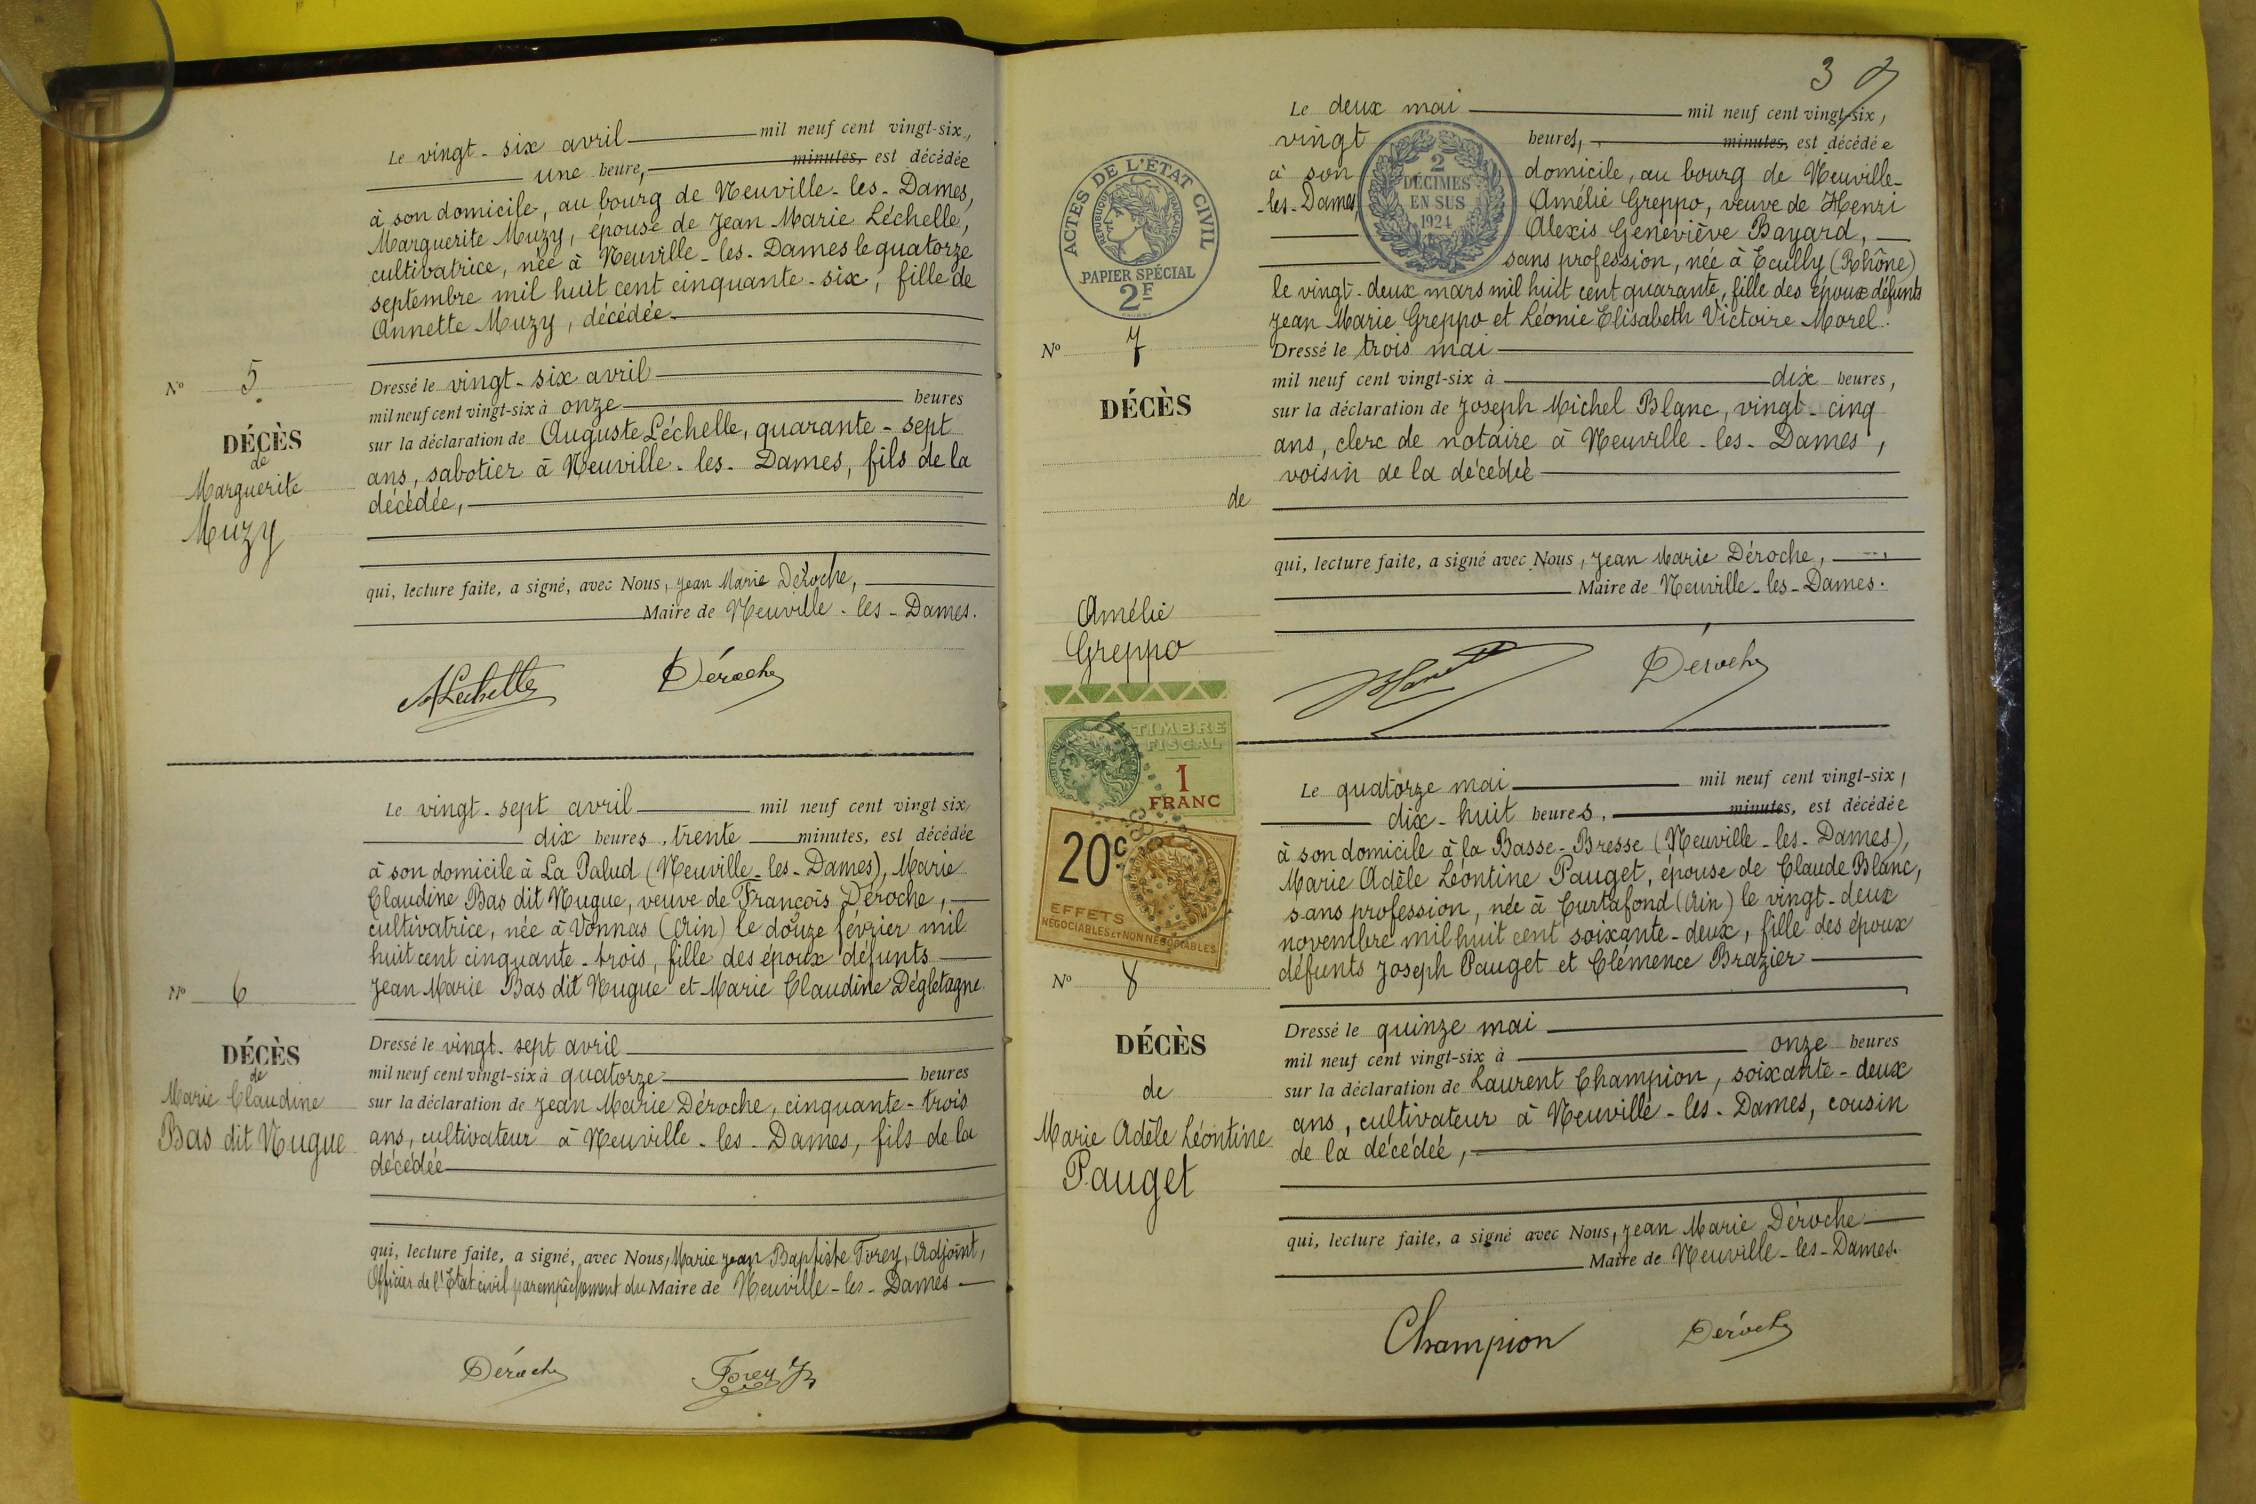 Le vingt-six avril mil neuf cent vingt-six,
une heure, minutes, est décédée
à son domicile, au bourg de Neuville-les-Dames,
Marguerite Muzy, épouse de Jean Marie Léchelle,
cultivatrice, née à Neuville-les-Dames le quatorze
septembre mil huit cent cinquante-six, fille de
Annette Muzy, décédée.
Nº 5
DÉCÈS
de
Marguerite
Muzy
Dressé le vingt-six avril
mil neuf cent vingt-six à onze heures
sur la déclaration de Auguste Léchelle, quarante-sept
ans, sabotier à Neuville-les-Dames, fils de la
décédée,
qui, lecture faite, a signé, avec Nous, Jean Marie Déroche,
Maire de Neuville-les-Dames.
ALéchelle Déroche
Le vingt-sept avril mil neuf cent vingt six,
dix heures, trente minutes, est décédée
à son domicile à La Palud (Neuville-les-Dames), Marie
Claudine Bas dit Nugue, veuve de François Déroche,
cultivatrice, née à Vonnas (Ain) le douze février mil
huit cent cinquante-trois, fille des époux défunts
Jean Marie Bas dit Nugue et Marie Claudine Dégletagne.
Nº 6
DÉCÈS
de
Marie Claudine
Bas dit Nugue
Dressé le vingt-sept avril
mil neuf cent vingt-six à quatorze heures
sur la déclaration de Jean Marie Déroche, cinquante-trois
ans, cultivateur à Neuville-les-Dames, fils de la
décédée
qui, lecture faite, a signé, avec Nous, Marie Jean Baptiste Forey, Adjoint,
Officier de l'Etat civil par empêchement du Maire de Neuville-les-Dames
Déroche Forey
3
ACTES DE L'ÉTAT CIVIL
RÉPUBLIQUE FRANÇAISE
PAPIER SPÉCIAL
2F
2
DÉCIMES
EN SUS
1924
Le deux mai mil neuf cent vingt-six,
vingt heures, minutes, est décédée
à son domicile, au bourg de Neuville-
-les-Dames, Amélie Greppo, veuve de Henri
Alexis Geneviève Bayard,
sans profession, née à Ecully (Rhône)
le vingt-deux mars mil huit cent quarante, fille des époux défunts
Jean Marie Greppo et Léonie Elisabeth Victoire Morel.
Nº 7
DÉCÈS
de
Amélie
Greppo
Dressé le trois mai
mil neuf cent vingt-six à dix heures,
sur la déclaration de Joseph Michel Blanc, vingt-cinq
ans, clerc de notaire à Neuville-les-Dames,
voisin de la décédée
qui, lecture faite, a signé avec Nous, Jean Marie Déroche,
Maire de Neuville-les-Dames.
Blanc Déroche
TIMBRE
FISCAL
1
FRANC
20c
EFFETS
NÉGOCIABLES ET NON NÉGOCIABLES
Le quatorze mai mil neuf cent vingt-six,
dix-huit heures, minutes, est décédée
à son domicile à la Basse-Bresse (Neuville-les-Dames),
Marie Adèle Léontine Pauget, épouse de Claude Blanc,
sans profession, née à Curtafond (Ain) le vingt-deux
novembre mil huit cent soixante-deux, fille des époux
défunts Joseph Pauget et Clémence Brazier
Nº 8
DÉCÈS
de
Marie Adèle Léontine
Pauget
Dressé le quinze mai
mil neuf cent vingt-six à onze heures
sur la déclaration de Laurent Champion, soixante-deux
ans, cultivateur à Neuville-les-Dames, cousin
de la décédée,
qui, lecture faite, a signé avec Nous, Jean Marie Déroche
Maire de Neuville-les-Dames.
Champion Déroche